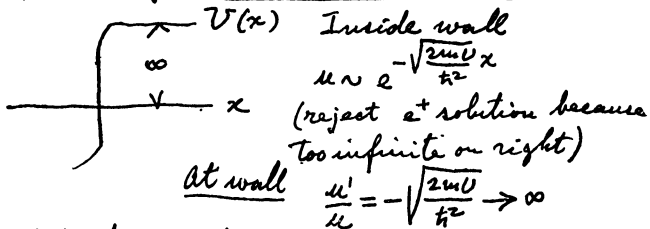 U(x) Inside wall
∞ u ~ e^{-√(2mU/ħ²) x}
x (reject e⁺ solution because
too infinite on right)
At wall u'/u = -√(2mU/ħ²) → ∞